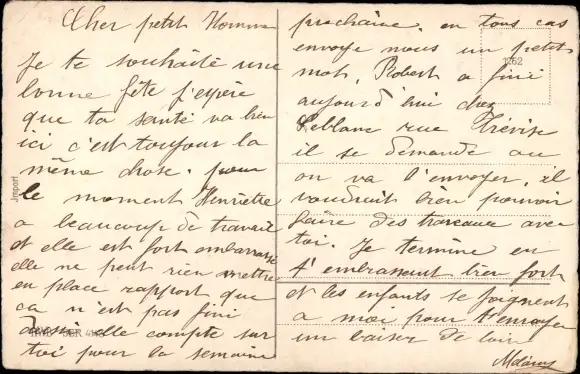 Cher petit Homme
Je te souhaite une
bonne fête j'espère
que ta santé va bien
ici c'est toujour la
même chose. pour
le moment Henriette
a beaucoup de travail
et elle est fort embarrassé
elle ne peut rien mettre
en place rapport que
ca n'est pas fini
aussi elle compte sur
toi pour la semaine
prochaine. en tous cas
envoye nous un petit
mot. Robert a fini
aujourd'hui chez
Leblanc rue Trévise
il se demande ou
on va l'envoyer. il
voudrait bien pouvoir
faire des traveaux avec
toi. Je termine en
t'embrassant bien fort
et les enfants se joignent
a moi pour t'envoyer
un baiser de loin
1262
Import